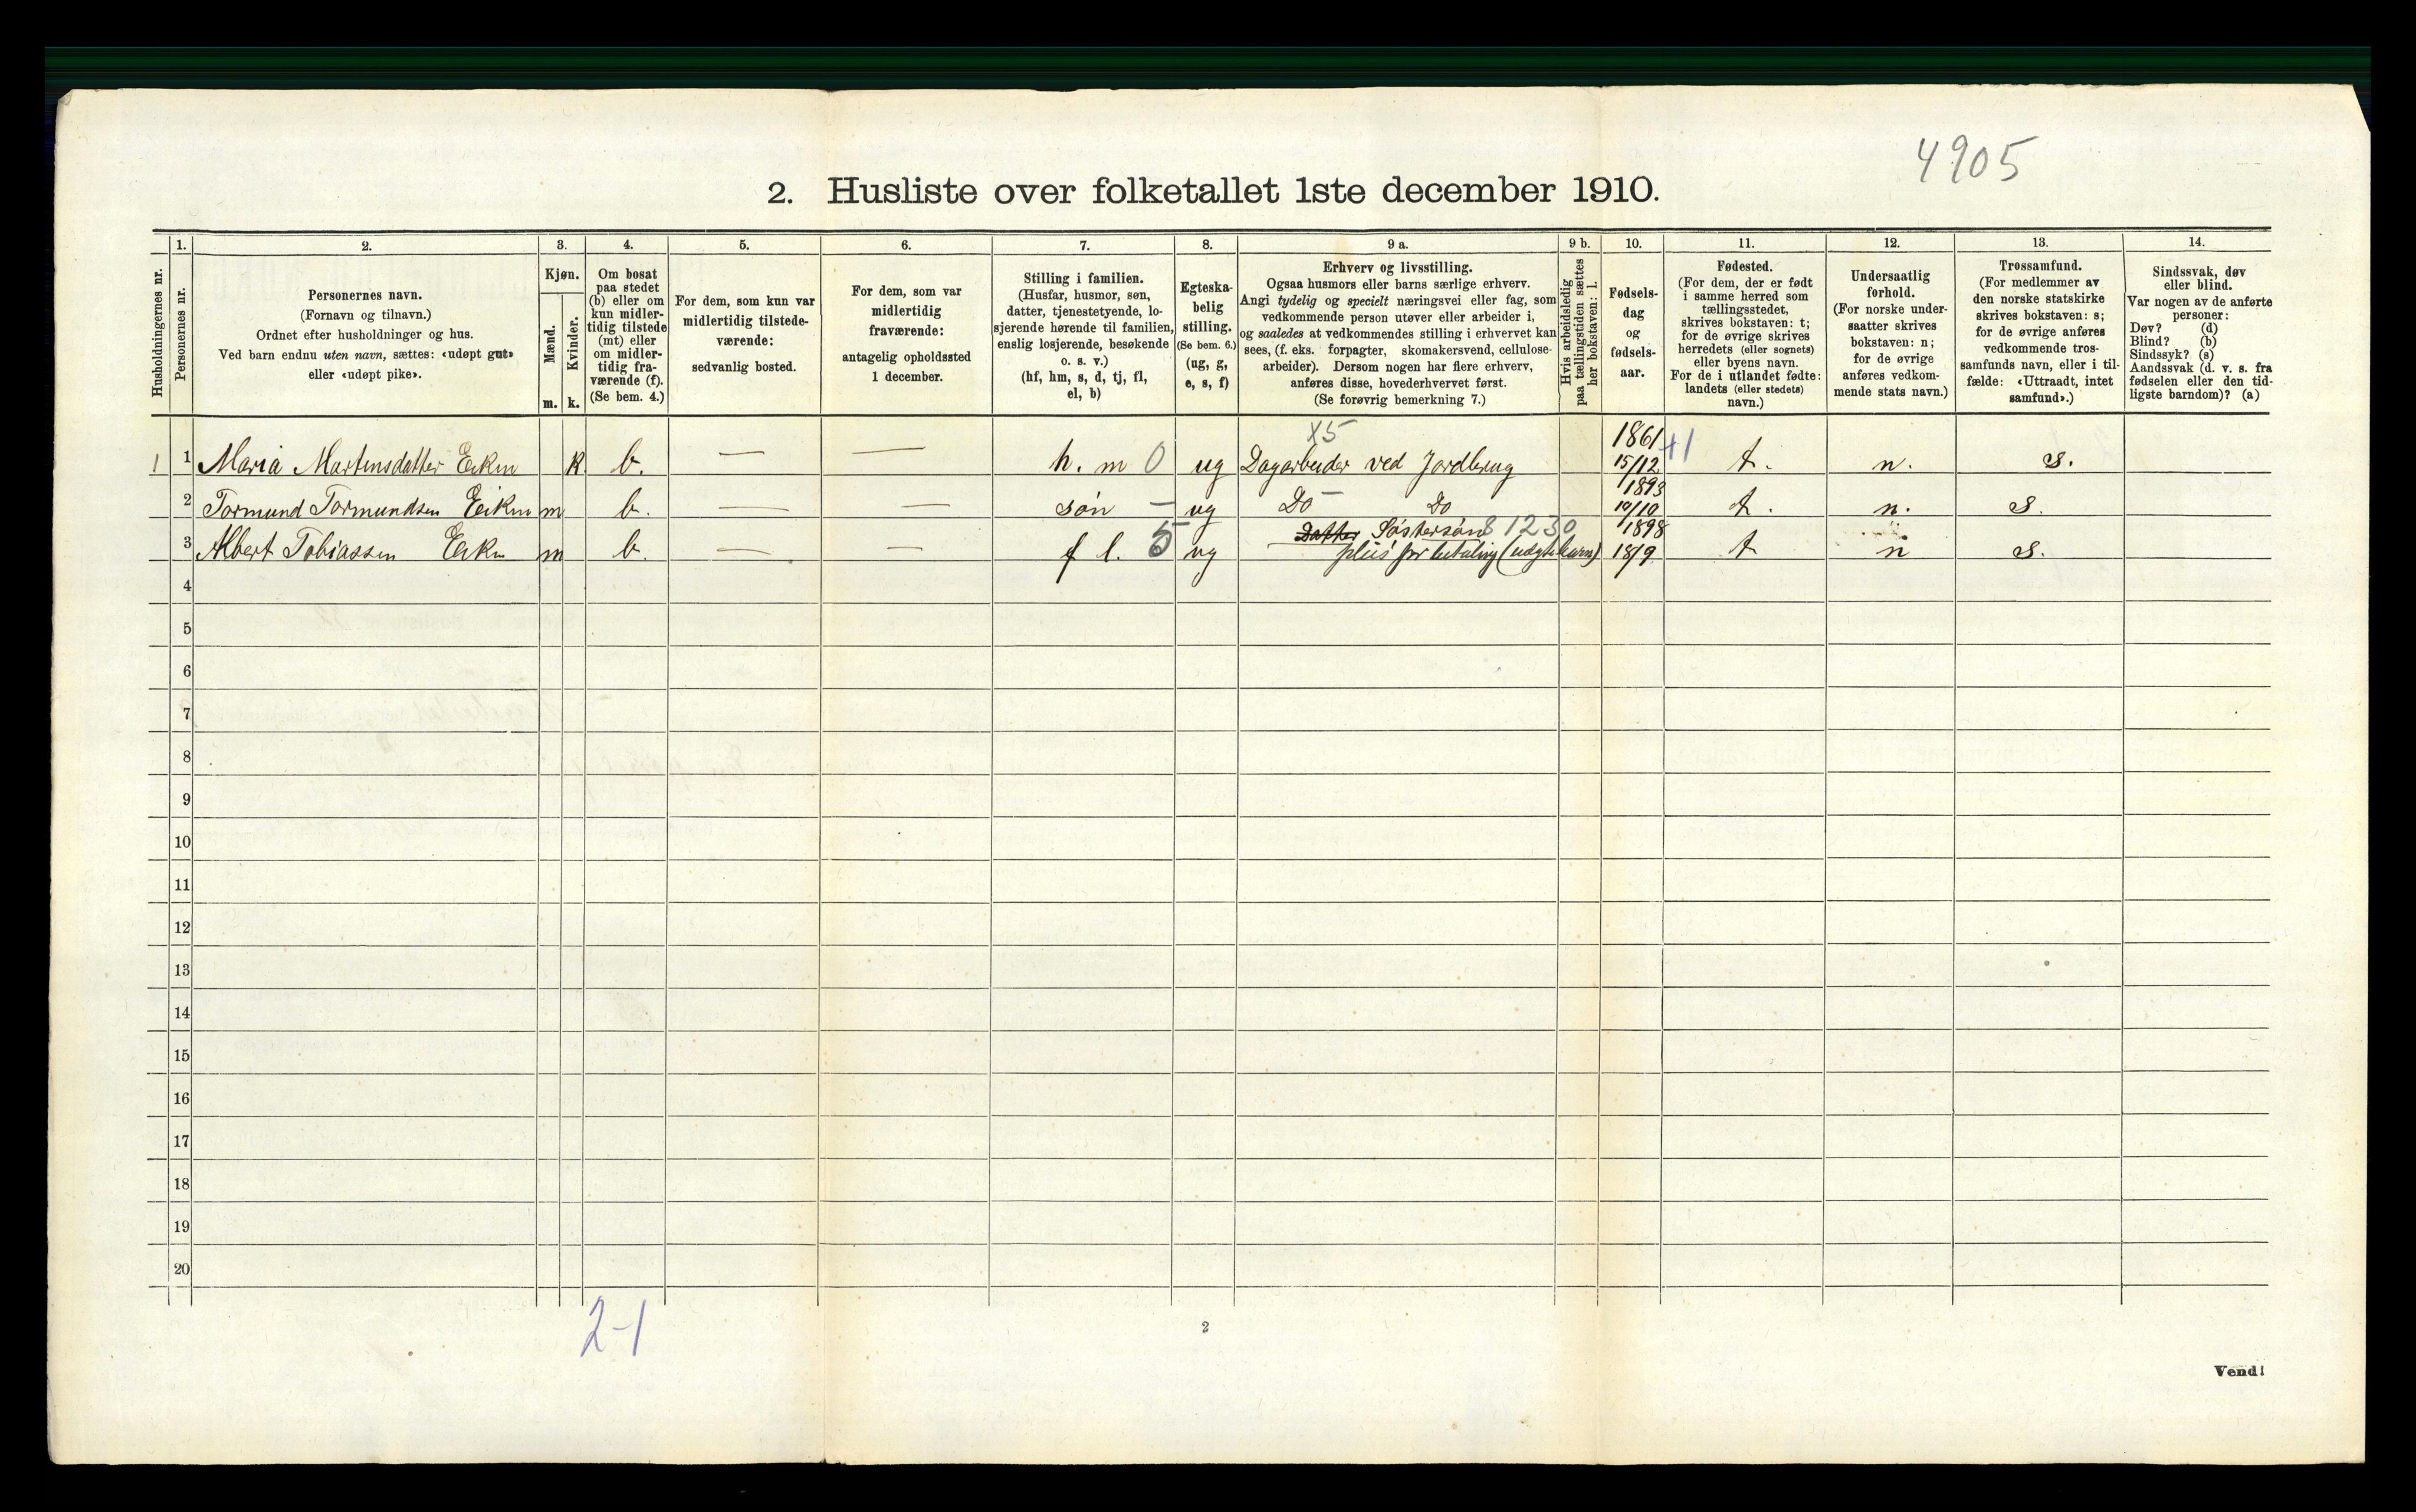 4905
2. Husliste over folketallet 1ste december 1910.
Husholdningernes nr.
1.
Personernes nr.
2.
Personernes navn.
(Fornavn og tilnavn.)
Ordnet efter husholdninger og hus.
Ved barn endnu uten navn, sættes: «udøpt gut»
eller «udøpt pike».
3.
Kjøn.
Mænd.
Kvinder.
m. k.
4.
Om bosat
paa stedet
(b) eller om
kun midler-
tidig tilstede
(mt) eller
om midler-
tidig fra-
værende (f).
(Se bem. 4.)
5.
For dem, som kun var
midlertidig tilstede-
værende:
sedvanlig bosted.
6.
For dem, som var
midlertidig
fraværende:
antagelig opholdssted
1 december.
7.
Stilling i familien.
(Husfar, husmor, søn,
datter, tjenestetyende, lo-
sjerende hørende til familien,
enslig losjerende, besøkende
o. s. v.)
(hf, hm, s, d, tj, fl,
el, b)
8.
Egteska-
belig
stilling.
(Se bem. 6.)
(ug, g,
e, s, f)
9 a.
Erhverv og livsstilling.
Ogsaa husmors eller barns særlige erhverv.
Angi tydelig og specielt næringsvei eller fag, som
vedkommende person utøver eller arbeider i,
og saaledes at vedkommendes stilling i erhvervet kan
sees, (f. eks. forpagter, skomakersvend, cellulose-
arbeider). Dersom nogen har flere erhverv,
anføres disse, hovederhvervet først.
(Se forøvrig bemerkning 7.)
9 b.
Hvis arbeidsledig
paa tællingstiden sættes
her bokstaven: l.
10.
Fødsels-
dag
og
fødsels-
aar.
11.
Fødested.
(For dem, der er født
i samme herred som
tællingsstedet,
skrives bokstaven: t;
for de øvrige skrives
herredets (eller sognets)
eller byens navn.
For de i utlandet fødte:
landets (eller stedets)
navn.)
12.
Undersaatlig
forhold.
(For norske under-
saatter skrives
bokstaven: n;
for de øvrige
anføres vedkom-
mende stats navn.)
13.
Trossamfund.
(For medlemmer av
den norske statskirke
skrives bokstaven: s;
for de øvrige anføres
vedkommende tros-
samfunds navn, eller i til-
fælde: «Uttraadt, intet
samfund».)
14.
Sindssvak, døv
eller blind.
Var nogen av de anførte
personer:
Døv? (d)
Blind? (b)
Sindssyk? (s)
Aandssvak (d. v. s. fra
fødselen eller den tid-
ligste barndom)? (a)
X5 1861
1 1 Maria Martinsdatter Eiken k b. — — h. m 0 ug Dagarbeider ved Jordbrug 15/12 +1 t. n. s.
1893
2 Tormund Tormundsen Eiken m b. — — søn — ug Do Do 10/10 t. n. s.
Datter Söstersøn 8 1230 1898
3 Albert Tobiassen Eiken m b. — — f l. 5 ug pleies for betaling 18/9 t n s.
4
5
6
7
8
9
10
11
12
13
14
15
16
17
18
19
20
2-1
2
Vend!